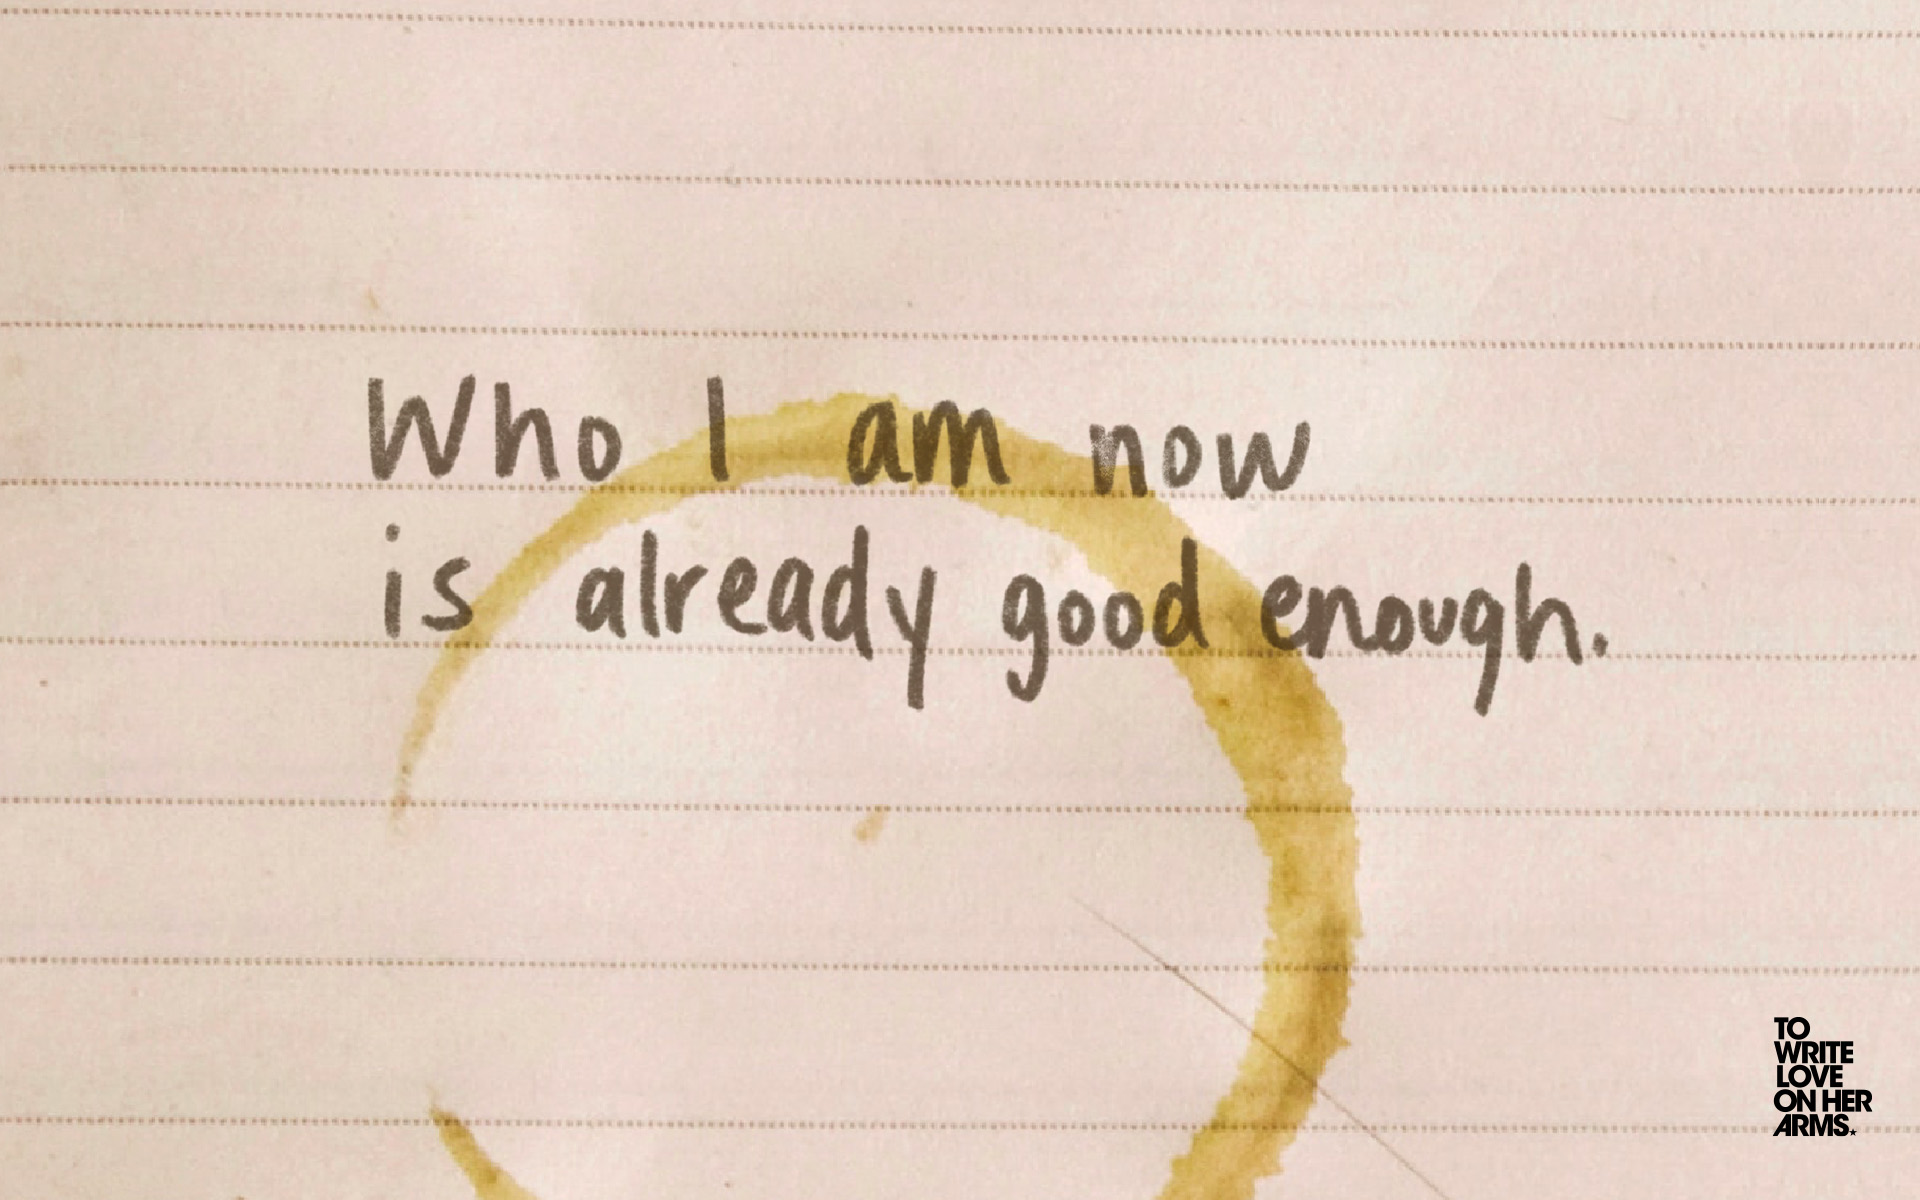 Who I am now
is already good enough.
TO
WRITE
LOVE
ON HER
ARMS.